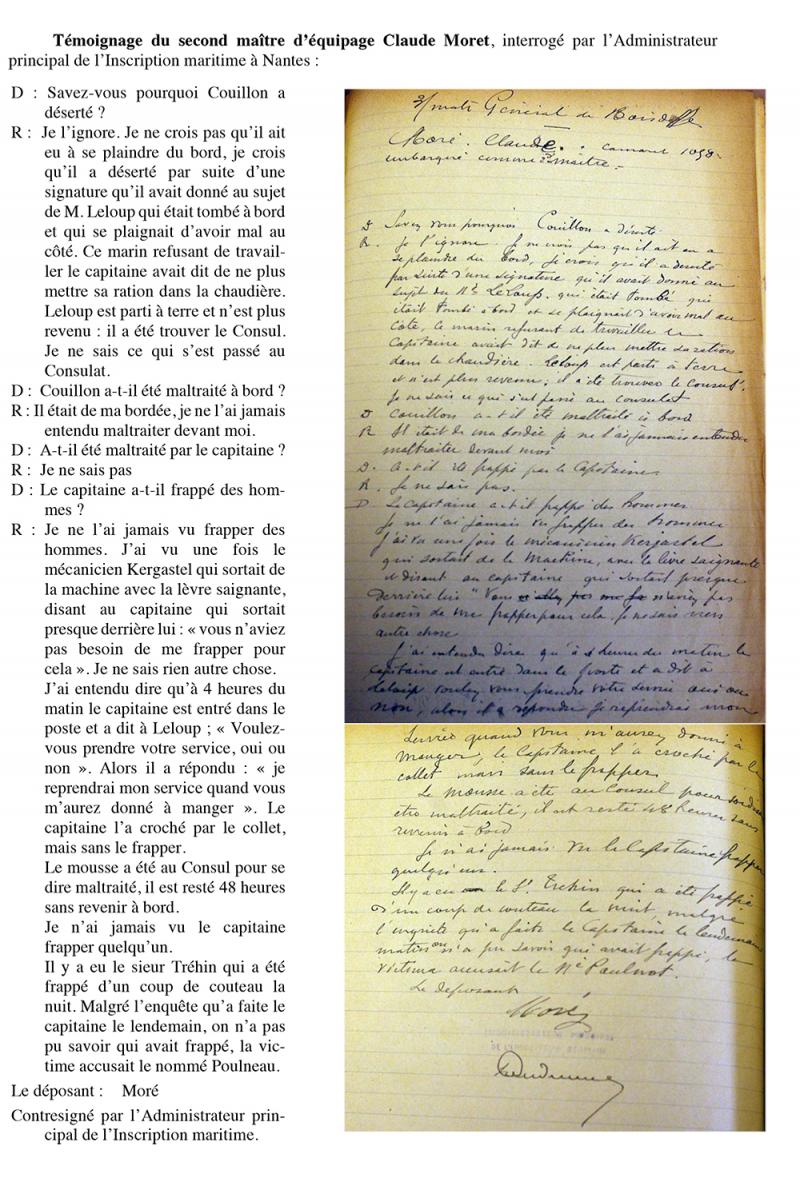 Témoignage du second maître d’équipage Claude Moret, interrogé par l’Administrateur
principal de l’Inscription maritime à Nantes :
D : Savez-vous pourquoi Couillon a
déserté ?
R : Je l’ignore. Je ne crois pas qu’il ait
eu à se plaindre du bord, je crois
qu’il a déserté par suite d’une
signature qu’il avait donné au sujet
de M. Leloup qui était tombé à bord
et qui se plaignait d’avoir mal au
côté. Ce marin refusant de travail-
ler le capitaine avait dit de ne plus
mettre sa ration dans la chaudière.
Leloup est parti à terre et n’est plus
revenu : il a été trouver le Consul.
Je ne sais ce qui s’est passé au
Consulat.
D : Couillon a-t-il été maltraité à bord ?
R : Il était de ma bordée, je ne l’ai jamais
entendu maltraiter devant moi.
D : A-t-il été maltraité par le capitaine ?
R : Je ne sais pas
D : Le capitaine a-t-il frappé des hom-
mes ?
R : Je ne l’ai jamais vu frapper des
hommes. J’ai vu une fois le
mécanicien Kergastel qui sortait de
la machine avec la lèvre saignante,
disant au capitaine qui sortait
presque derrière lui : « vous n’aviez
pas besoin de me frapper pour
cela ». Je ne sais rien autre chose.
J’ai entendu dire qu’à 4 heures du
matin le capitaine est entré dans le
poste et a dit à Leloup ; « Voulez-
vous prendre votre service, oui ou
non ». Alors il a répondu : « je
reprendrai mon service quand vous
m’aurez donné à manger ». Le
capitaine l’a croché par le collet,
mais sans le frapper.
Le mousse a été au Consul pour se
dire maltraité, il est resté 48 heures
sans revenir à bord.
Je n’ai jamais vu le capitaine
frapper quelqu’un.
Il y a eu le sieur Tréhin qui a été
frappé d’un coup de couteau la
nuit. Malgré l’enquête qu’a faite le
capitaine le lendemain, on n’a pas
pu savoir qui avait frappé, la vic-
time accusait le nommé Poulneau.
Le déposant : Moré
Contresigné par l’Administrateur prin-
cipal de l’Inscription maritime.
Général de Boisdeffre
Moré. Claude. Camaret 1058
embarqué comme 2e maître
D Savez vous pourquoi Couillon a déserté
R. Je l'ignore. Je ne crois pas qu'il ait eu a
se plaindre du bord, je crois qu'il a déserté
par suite d'une signature qu'il avait donné au
sujet du Me Leloup. qui était tombé qui
était tombé à bord et se plaignait d'avoir mal au
côté, le marin refusant de travailler le
Capitaine avait dit de ne plus mettre sa ration
dans la chaudière. Leloup est parti à terre
et n'est plus revenu; il a été trouver le Consul.
Je ne sais ce qui s'est passé au consulat
D Couillon a-t-il été maltraité à bord
R Il était de ma bordée je ne l'ai jamais entendu
maltraiter devant moi
D. A-t-il été frappé par le Capitaine
R. Je ne sais pas.
D. Le Capitaine a-t-il frappé des hommes
Je ne l'ai jamais vu frapper des hommes
J'ai vu une fois le mécanicien Kergastel
qui sortait de la machine, avec la lèvre saignante
et disant au capitaine qui sortait presque
derrière lui "Vous n'aviez pas
besoin de me frapper pour cela. Je ne sais rien
autre chose
J'ai entendu dire qu'à 4 heures du matin le
capitaine est entré dans le poste et a dit à
Leloup voulez vous prendre votre service oui ou
non, alors il a répondu je reprendrai mon
service quand vous m'aurez donné à
manger, le Capitaine l'a croché par le
collet mais sans le frapper
Le mousse a été au Consul pour se dire
etre maltraité, il est resté 48 heures sans
revenir à bord
Je n'ai jamais vu le Capitaine frapper
quelqu'un.
Il y a eu le Sr. Tréhin qui a été frappé
d'un coup de couteau la nuit, malgré
l'enquête qu'a faite le Capitaine le lendemain
matin on n'a pu savoir qui avait frappé, la
victime accusait le Né Paulnot.
Le déposant
Moré